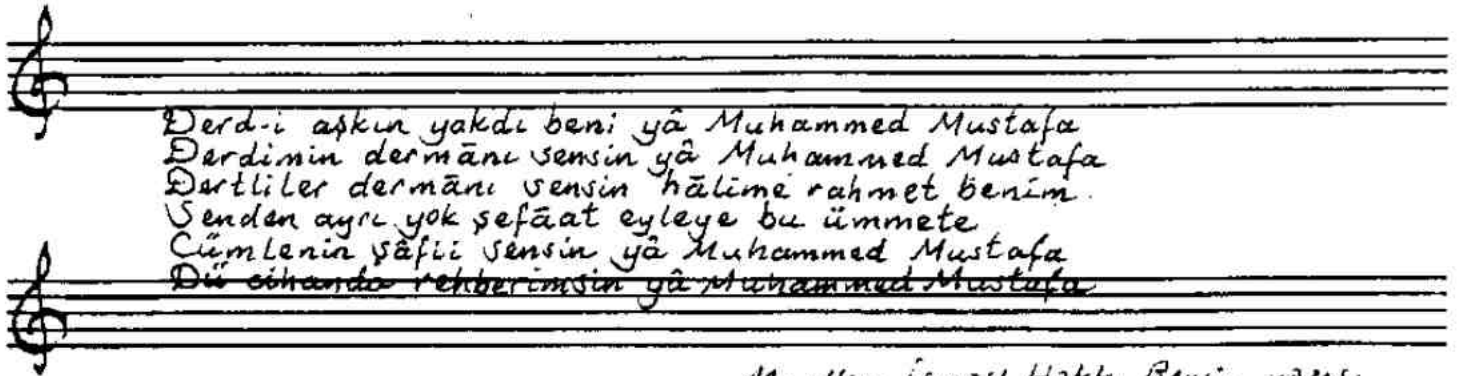 Derd-i aşkın yakdı beni yâ Muhammed Mustafa
Derdimin dermānı sensin yâ Muhammed Mustafa
Dertliler dermānı sensin hālime rahmet benim.
Senden ayrı yok şefāat eyleye bu ümmete
Cümlenin şâfii sensin yâ Muhammed Mustafa
Dü cihanda rehberimsin yâ Muhammed Mustafa
İsmail Hakkı Bey'in